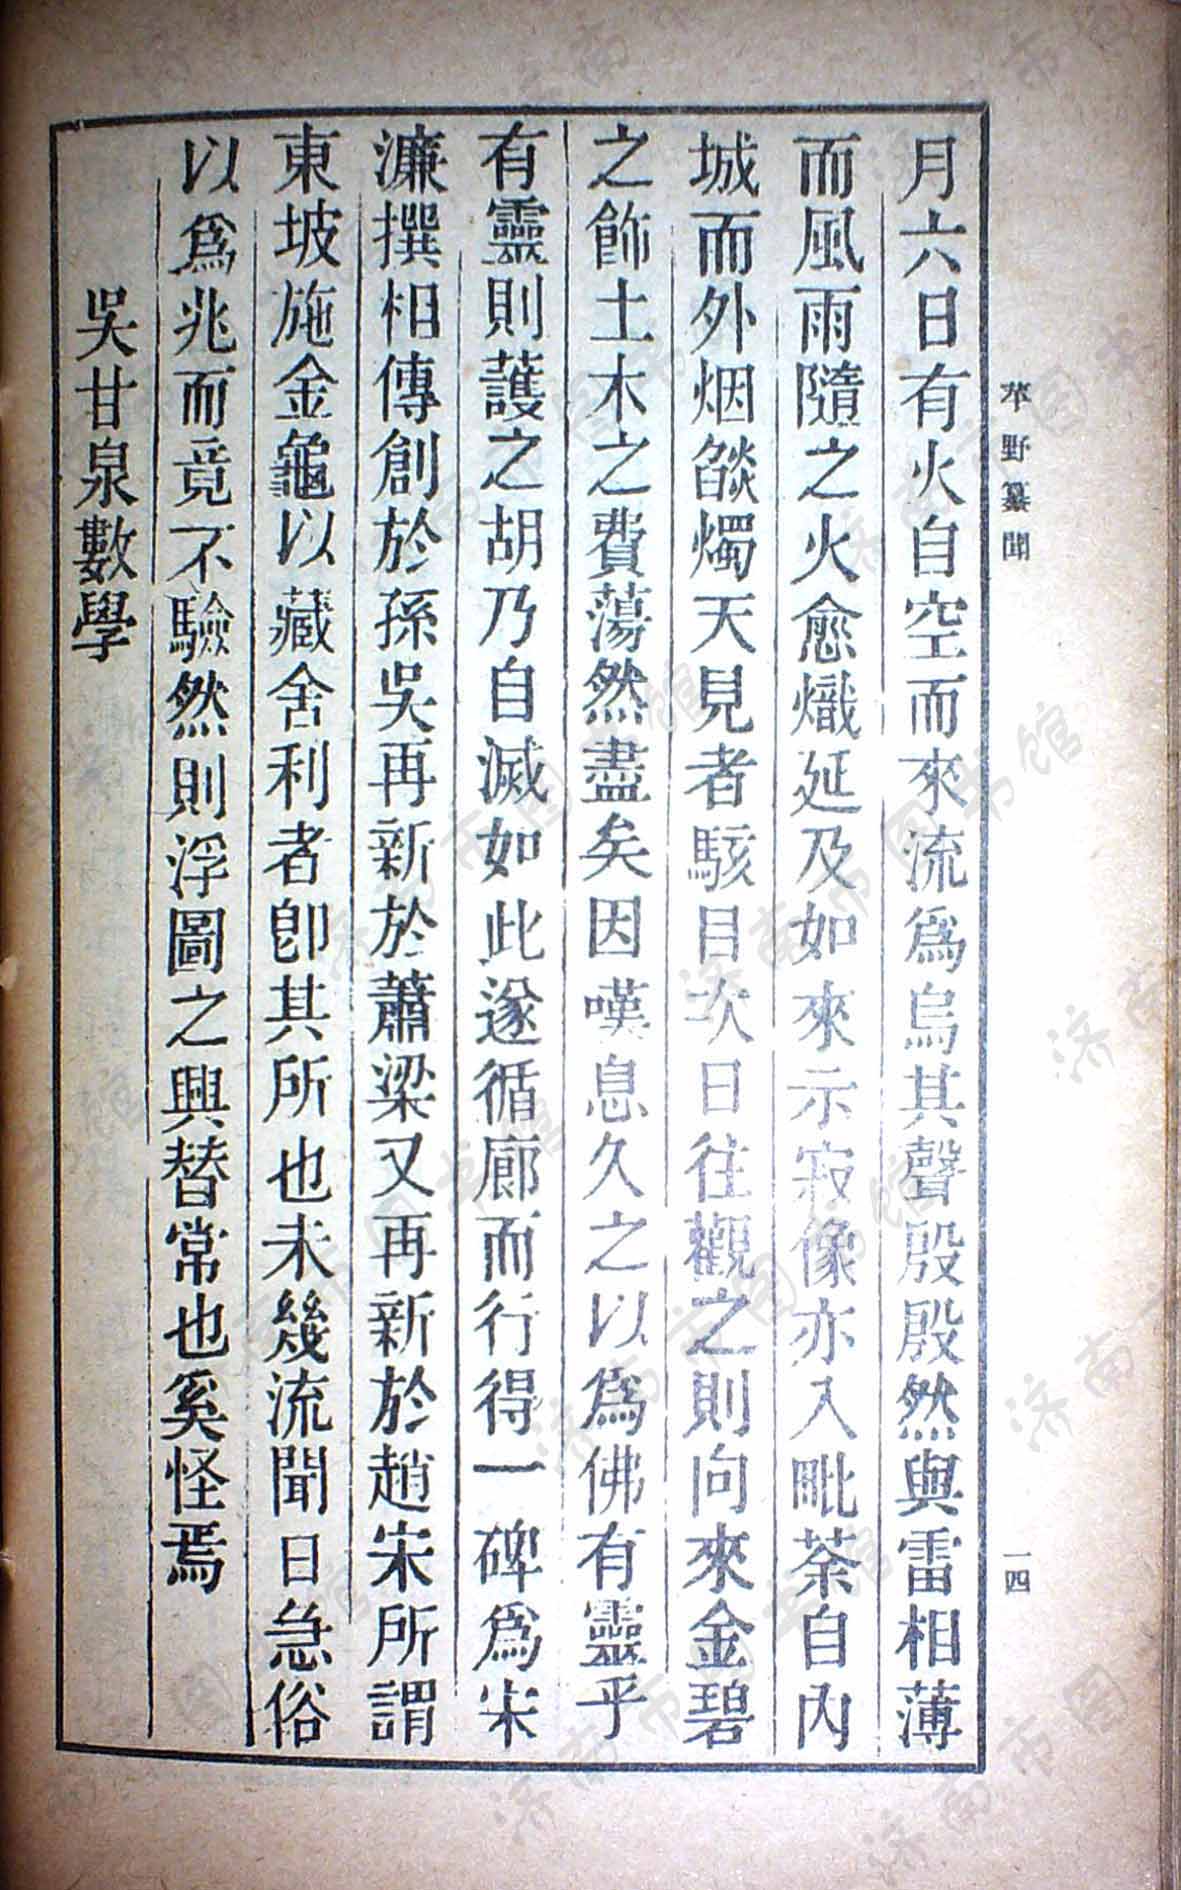 莘野纂聞
一四
月六日有火自空而來流爲烏其聲殷殷然與雷相薄
而風雨隨之火愈熾延及如來示寂像亦入毗荼自內
城而外烟燄燭天見者駭目次日往觀之則向來金碧
之飾土木之費蕩然盡矣因嘆息久之以爲佛有靈乎
有靈則護之胡乃自滅如此遂循廊而行得一碑爲宋
濂撰相傳創於孫吳再新於蕭梁又再新於趙宋所謂
東坡施金龜以藏舍利者卽其所也未幾流聞日急俗
以爲兆而竟不驗然則浮圖之興替常也奚怪焉
吳甘泉數學
济南市图书馆